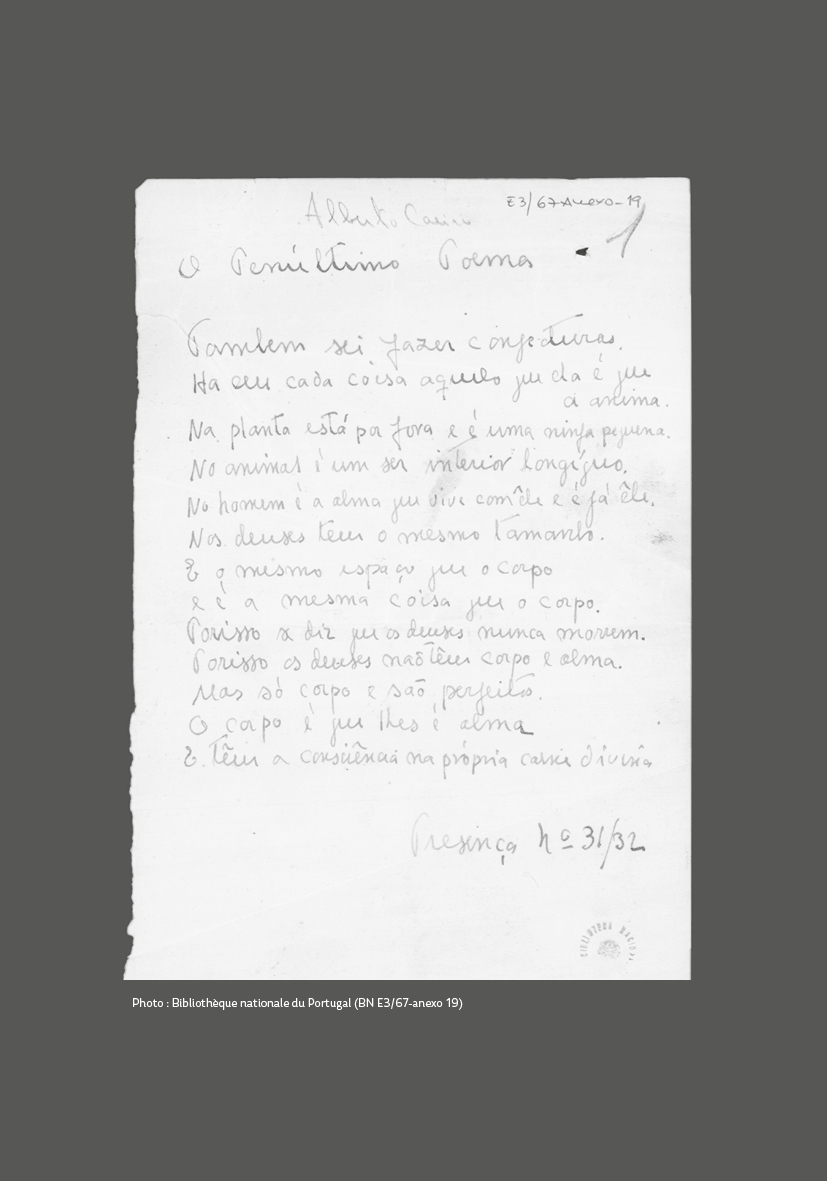 Alberto Caeiro
E3/67-Anexo-19
1
O Penúltimo Poema
Tambem sei fazer conjeturas.
Ha em cada coisa aquilo que ela é que
a anima.
Na planta está por fora e é uma ninfa pequena.
No animal é um ser interior longíguo.
No homem é a alma que vive com êle e é já êle.
Nos deuses tem o mesmo tamanho.
E o mesmo espaço que o corpo
e é a mesma coisa que o corpo.
Porisso se diz que os deuses nunca morrem.
Porisso os deuses não têm corpo e alma.
Mas só corpo e são perfeitos.
O corpo é que lhes é alma
E têm a consciência na própria carne divina
Presença nº 31/32
BIBLIOTECA NACIONAL
Photo : Bibliothèque nationale du Portugal (BN E3/67-anexo 19)